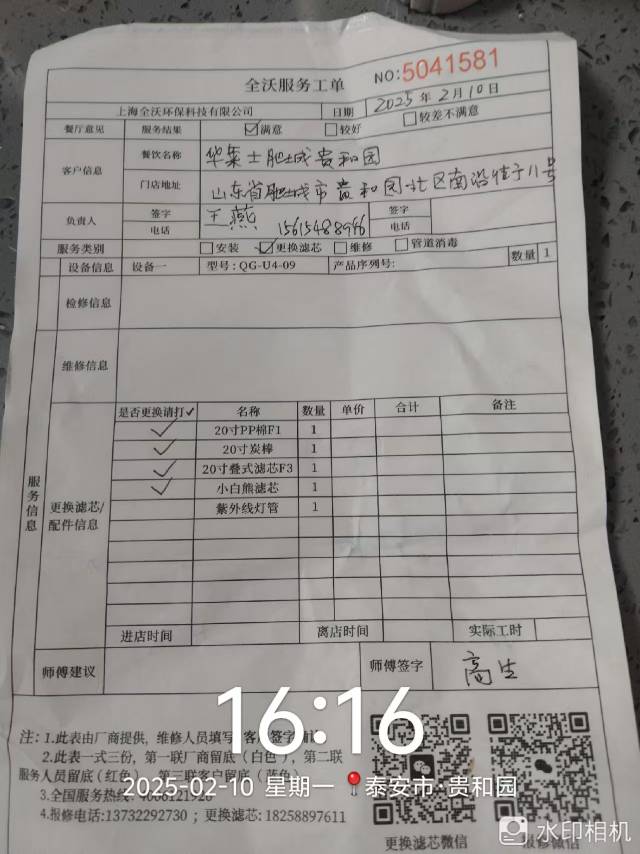 全沃服务工单
NO:5041581
上海全沃环保科技有限公司 日期 2025年2月10日
餐厅意见 服务结果 ☑满意 □较好 □较差不满意
客户信息 餐饮名称 华莱士肥城贵和园
门店地址 山东省肥城市贵和园北区南沿街子八号
负责人 签字 王燕 签字
电话 电话
服务类别 □安装 ☑更换滤芯 □维修 □管道消毒
设备信息 设备一 型号:QG-U4-09 产品序列号: 数量 1
检修信息
维修信息
服务信息
更换滤芯/配件信息
是否更换请打✓ 名称 数量 单价 合计 备注
✓ 20寸PP棉F1 1
✓ 20寸炭棒 1
✓ 20寸叠式滤芯F3 1
✓ 小白熊滤芯 1
紫外线灯管 1
进店时间 离店时间 实际工时
师傅建议 师傅签字 高生
注:1.此表由厂商提供,维修人员填写
2.此表一式三份,第一联厂商留底(白色),第二联
服务人员留底(红色) 第三联客户留底(蓝色)
3.全国服务热线:4008121920
4.报修电话:13732292730;更换滤芯:18258897611
更换滤芯微信
报修微信
16:16
2025-02-10 星期一 泰安市·贵和园
水印相机